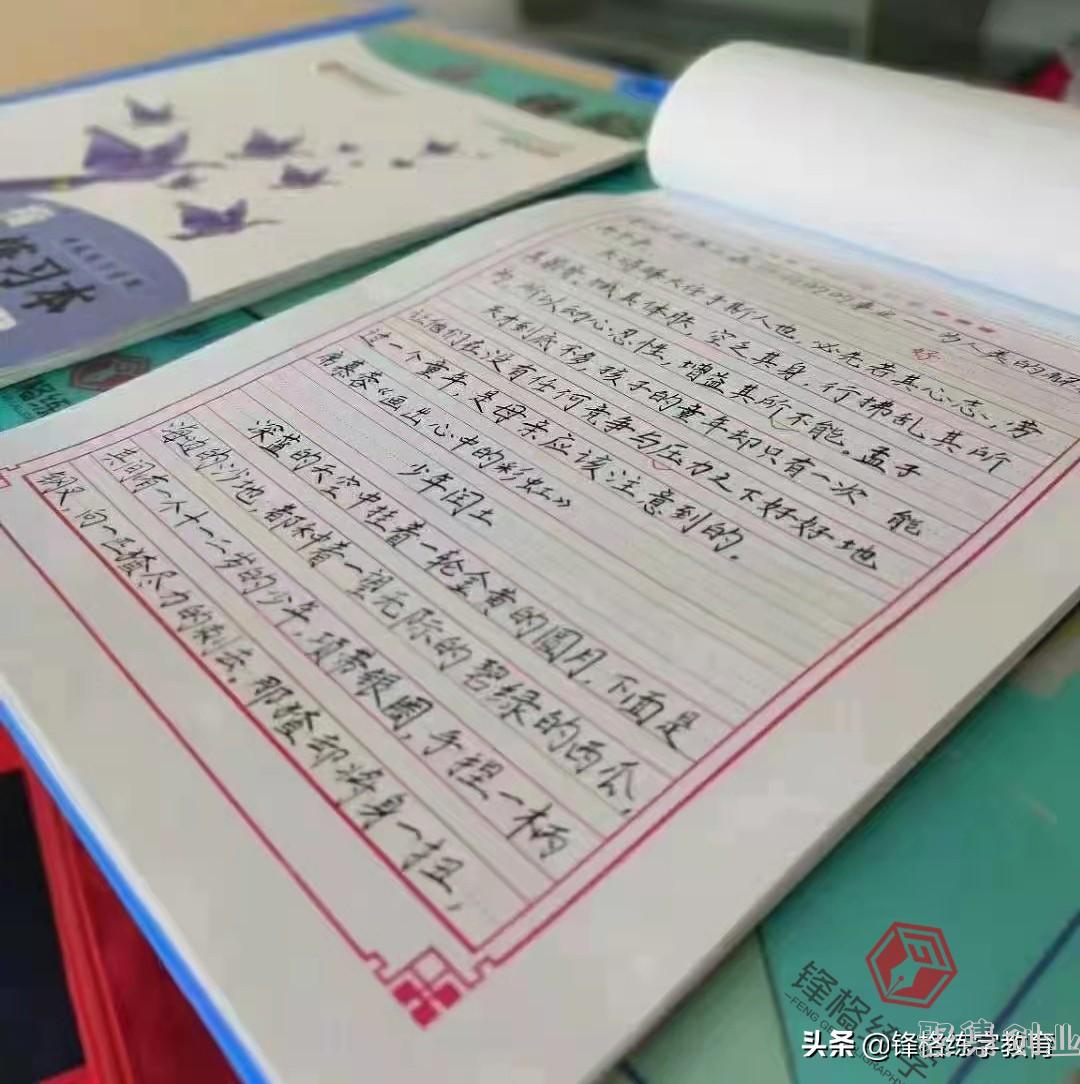 练习本
的事业——为人类的解
天将降大任于斯人也，必先苦其心志，劳
其筋骨，饿其体肤，空乏其身，行拂乱其所
为，所以动心忍性，增益其所不能。孟子
天才到底不多，孩子的童年却只有一次 能
让他们在没有任何竞争与压力之下好好地
过一个童年，是母亲应该注意到的。
席慕蓉《画出心中的彩虹》
少年闰土
深蓝的天空中挂着一轮金黄的圆月，下面是
海边的沙地，都种着一望无际的碧绿的西瓜，
其间有一个十一二岁的少年，项带银圈，手捏一柄
钢叉，向一匹猹尽力的刺去，那猹却将身一扭，
锋格练字
头条 @锋格练字教育